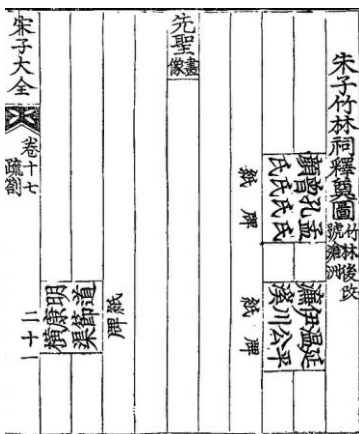 朱子竹林祠釋奠圖
竹林後改
號滄洲
顏氏
曾氏
孔氏
孟氏
紙牌
濂溪
伊川
溫公
延平
紙牌
先聖
畫像
紙牌
明道
康節
橫渠
宋子大全
卷十七
疏劄
二十一